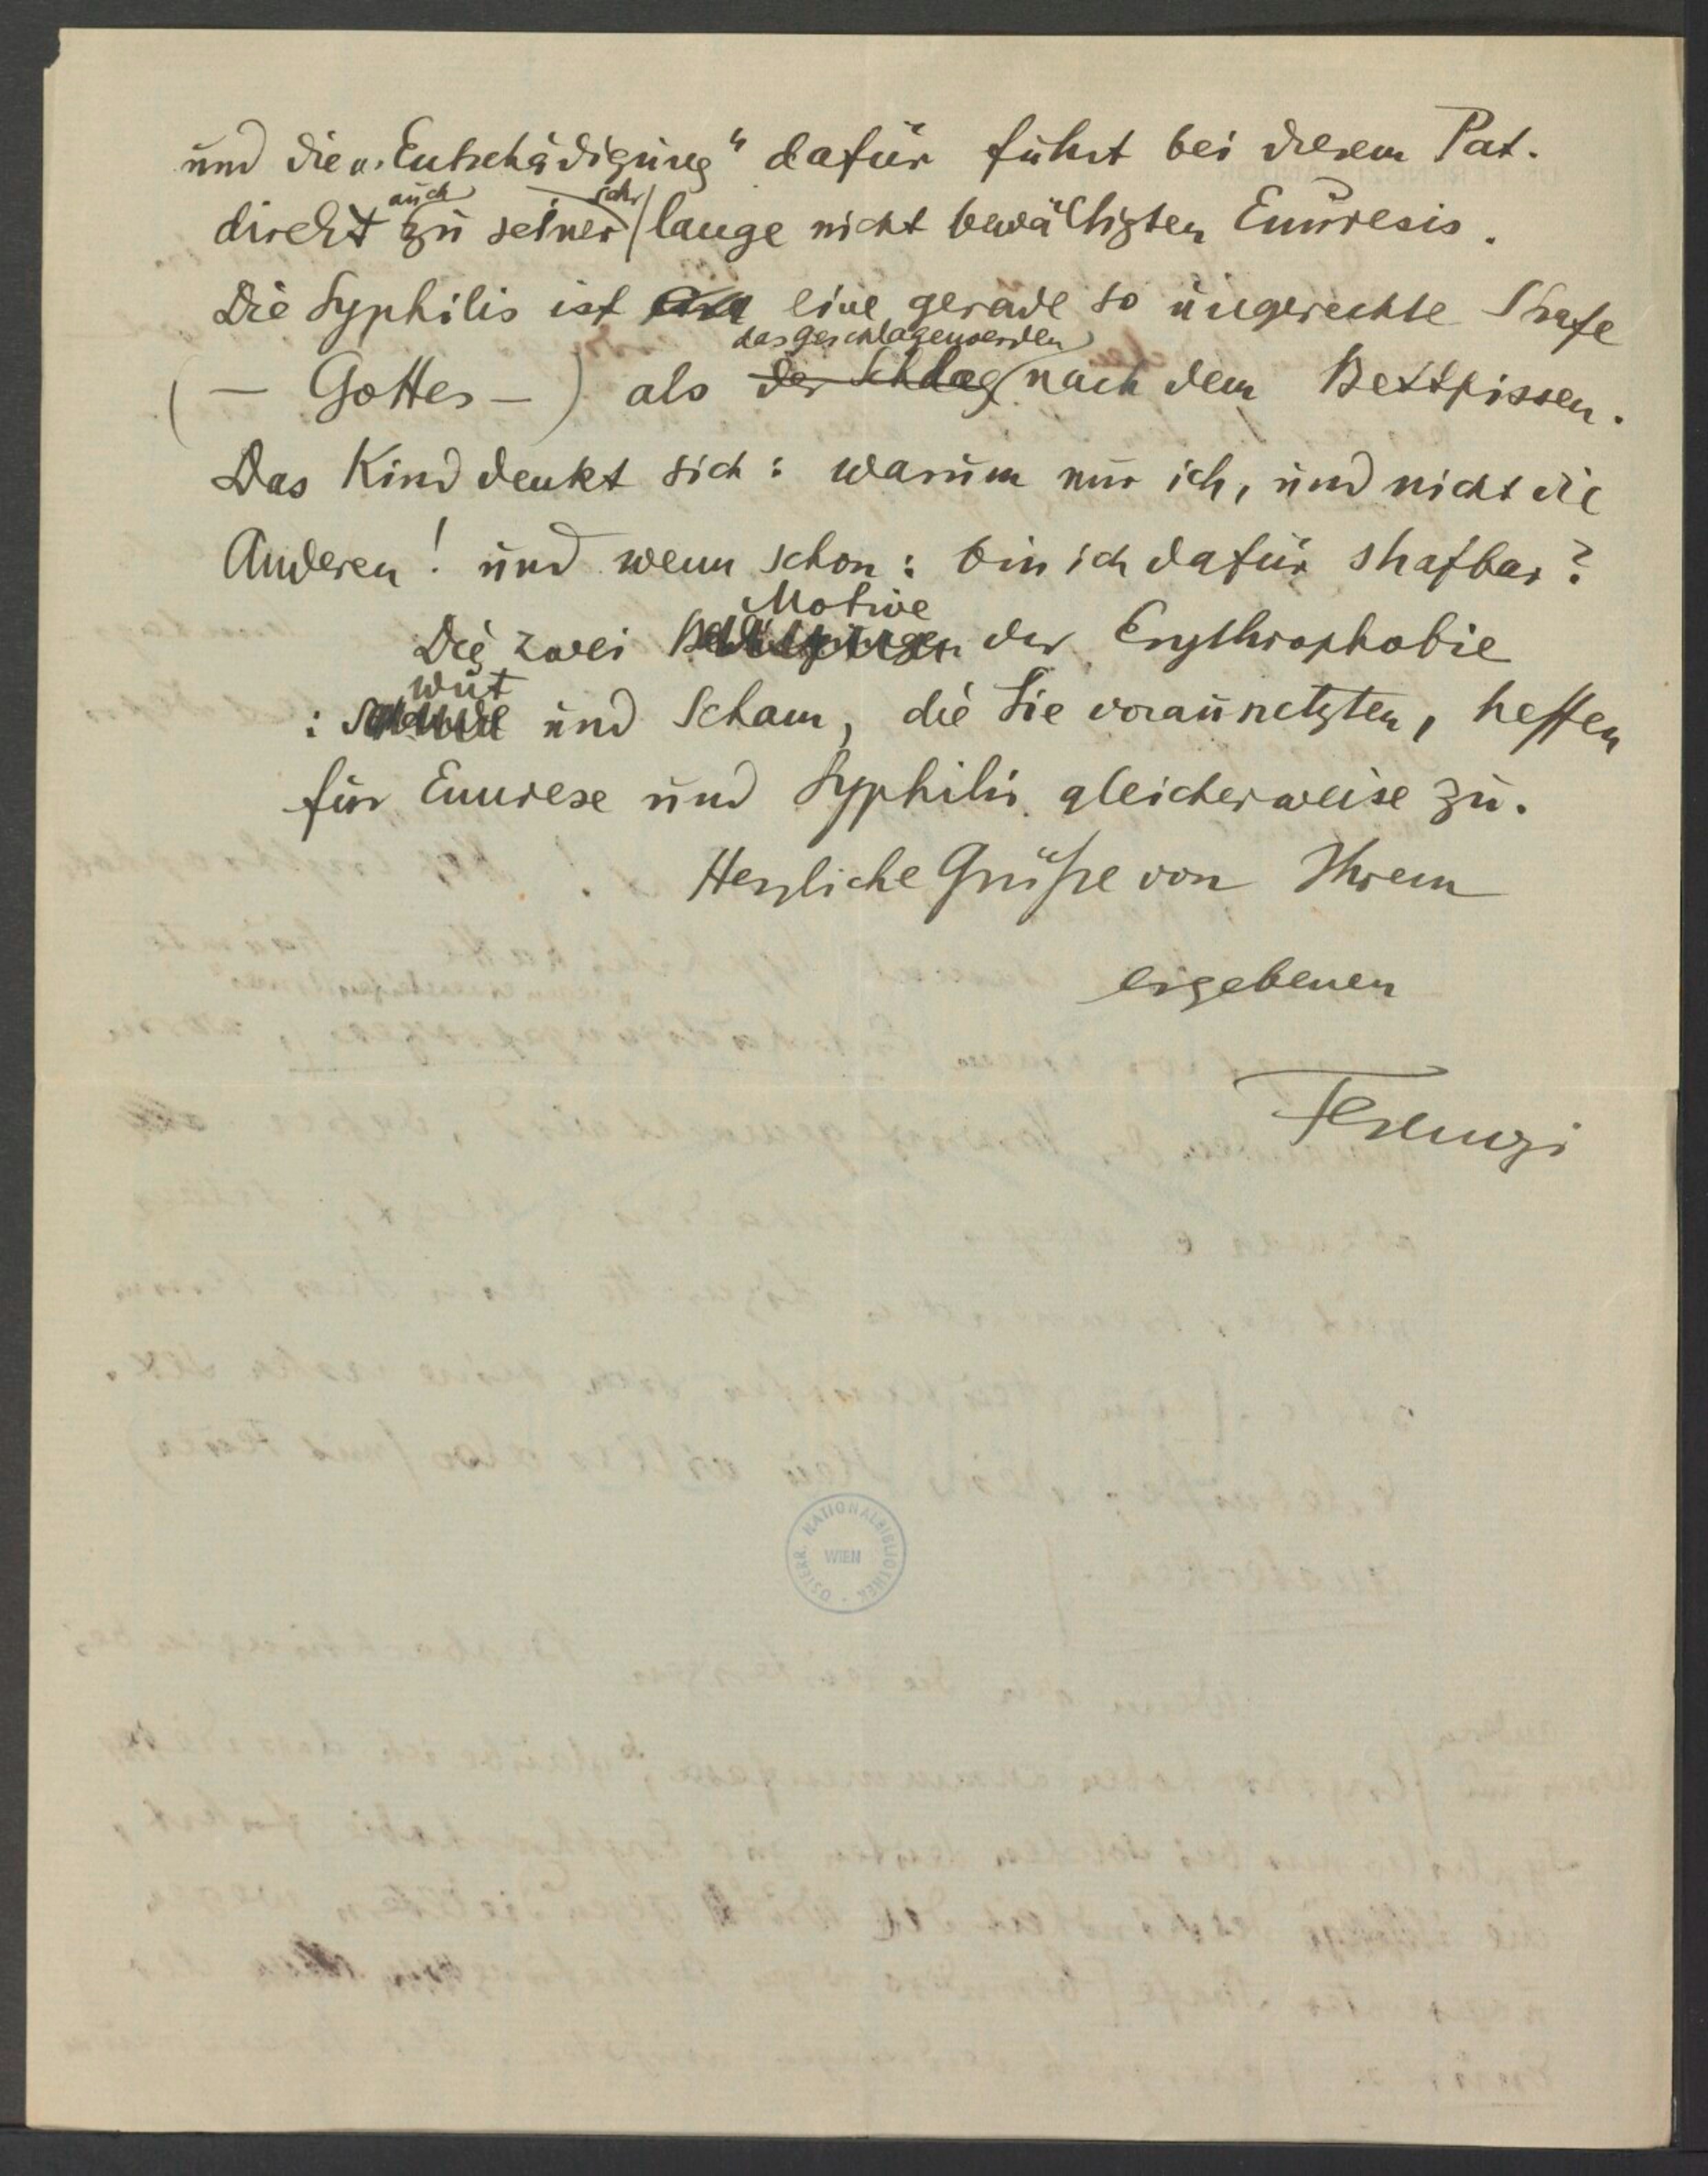 und die „Entschädigung“ dafür führt bei diesem Pat.
auch sehr
direkt zu seiner lange nicht bewältigten Enuresis.
Die Syphilis ist eine gerade so ungerechte Strafe
das geschlagenwerden
(— Gottes —) als der Schlag nach dem Bettpissen.
Das Kind denkt sich: warum nur ich, und nicht die
Anderen! und wenn schon: bin ich dafür strafbar?
Motive
Die zwei der Erythrophobie
wut
: und Scham, die Sie voraussetzten, treffen
für Enurese und Syphilis gleicherweise zu.
Herzliche Grüße von Ihrem
ergebenen
Ferenczi
ÖSTERR. NATIONALBIBLIOTHEK
WIEN